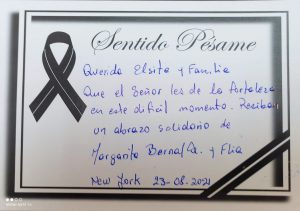 Sentido Pésame
Querida Elsita y Familia
Que el Señor les de la fortaleza
en este dificil momento. Reciban
un abrazo solidario de
Margarita Bernal Q. y Flia
New York 23-08-2021